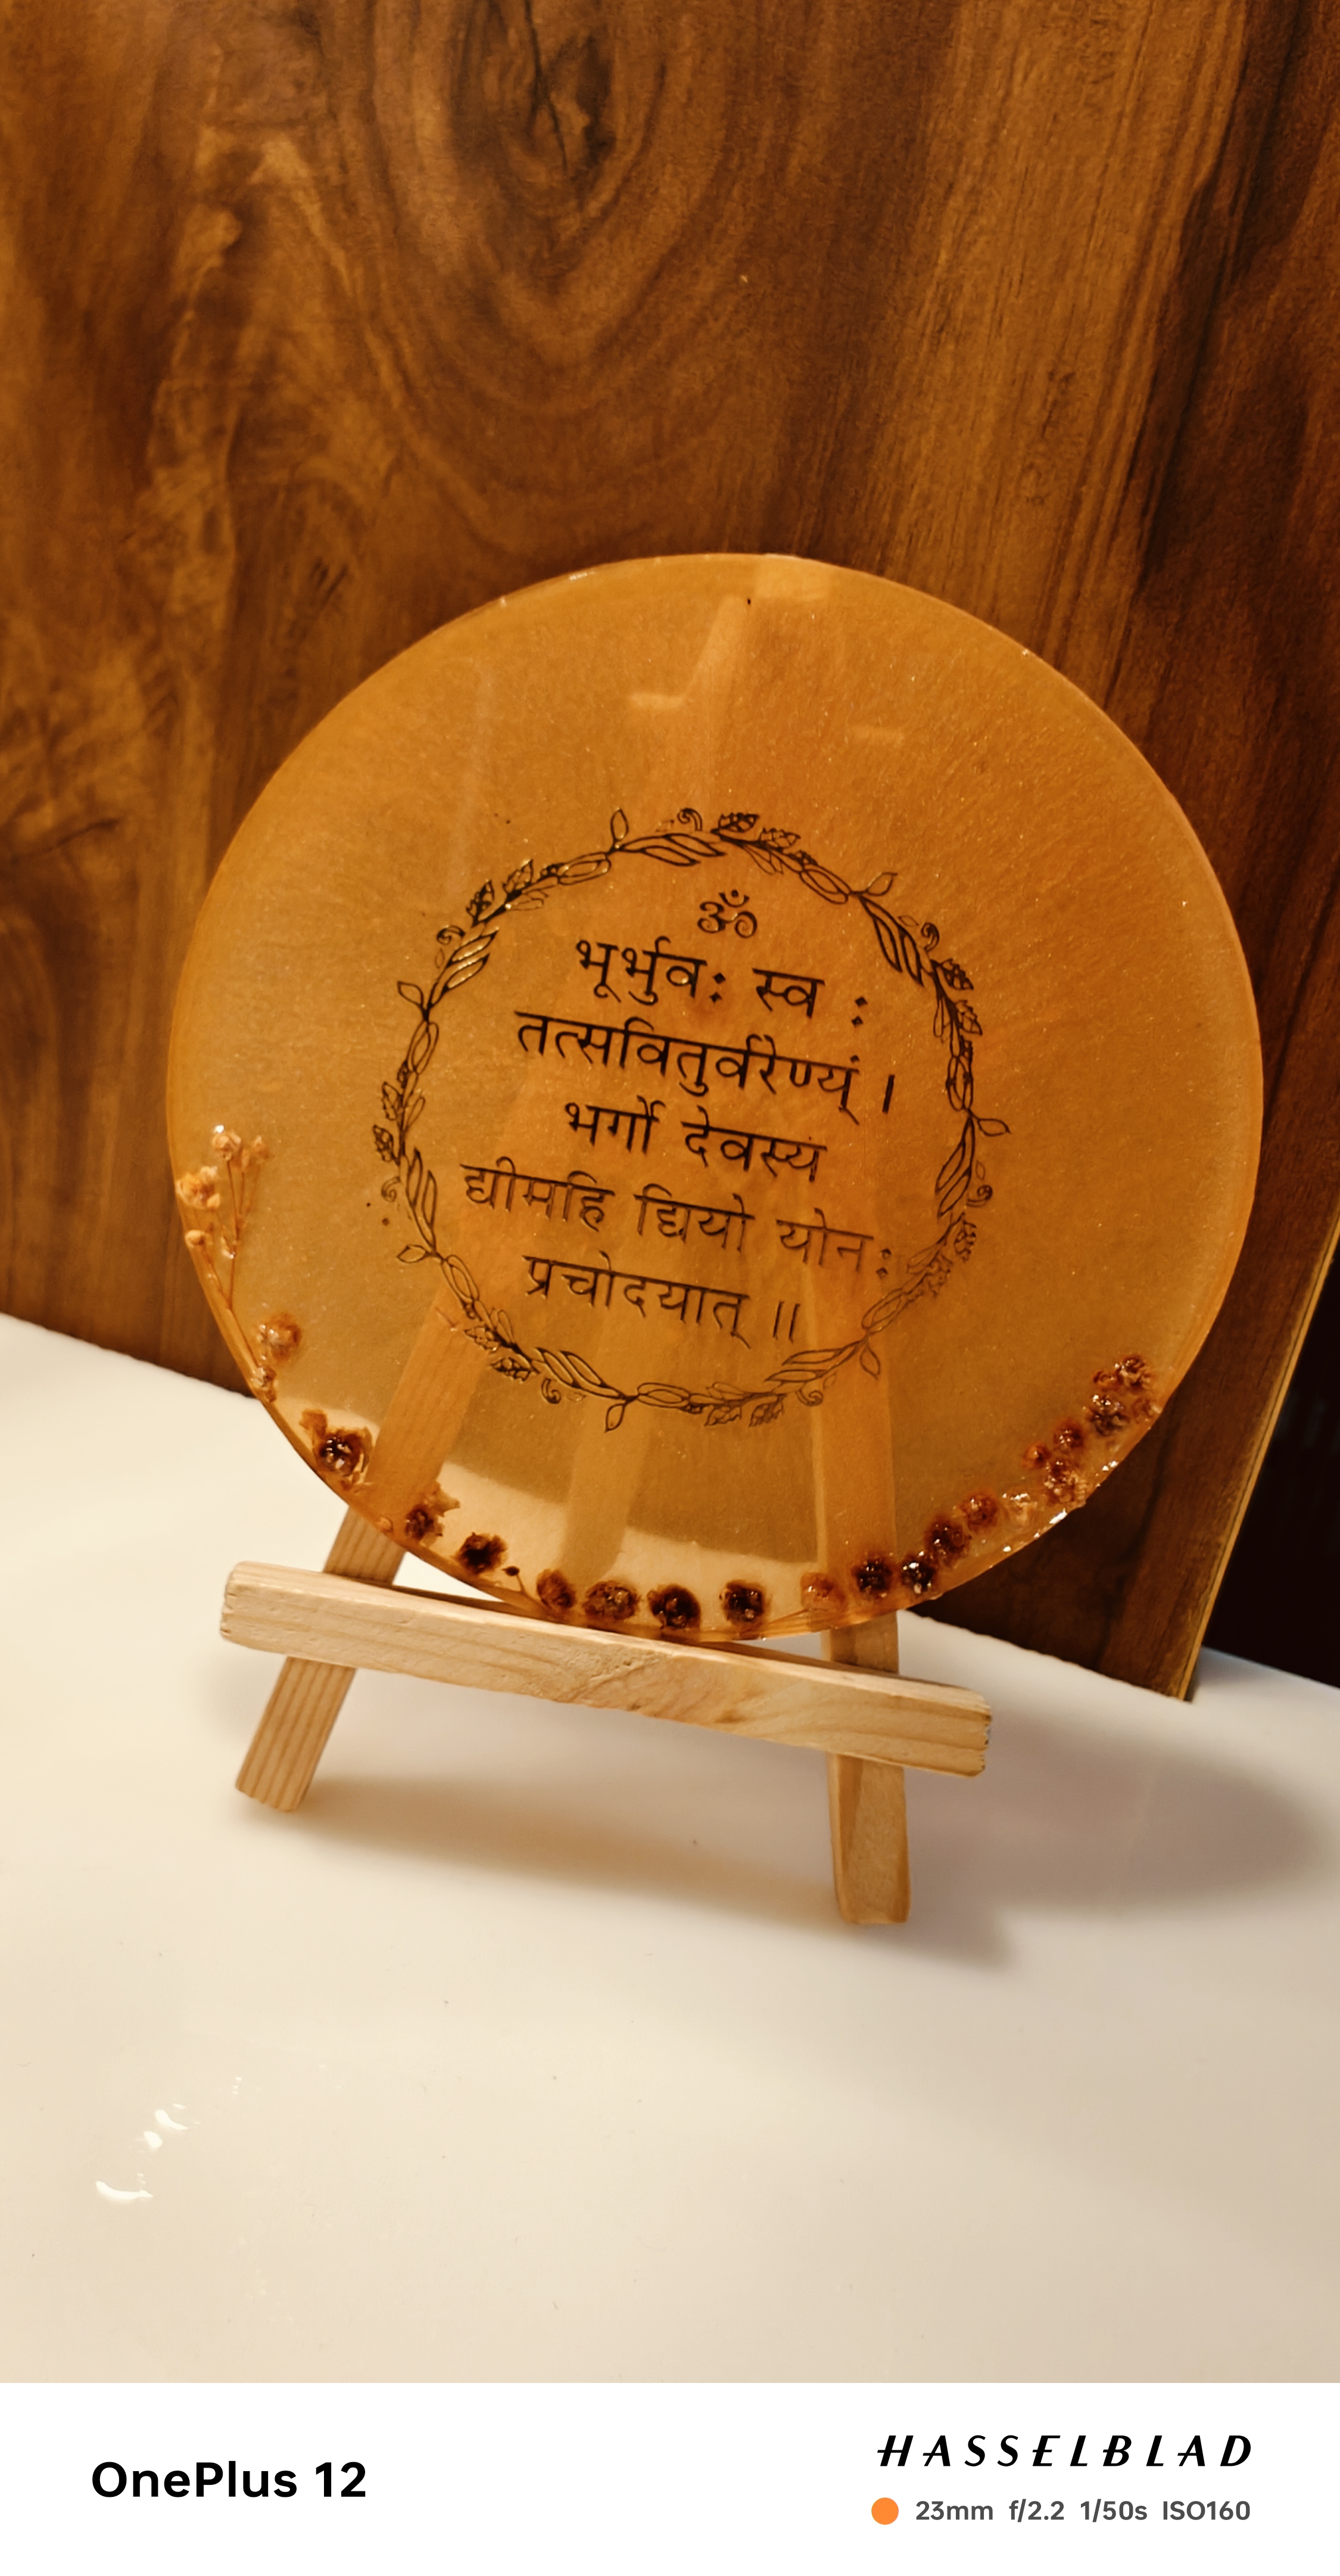 ॐ
भूर्भुवः स्व :
तत्सवितुर्वरेण्यं ।
भर्गो देवस्यं
द्यीमहि द्यियो योनः
प्रचोदयात् ॥
OnePlus 12
HASSELBLAD
23mm f/2.2 1/50s ISO160